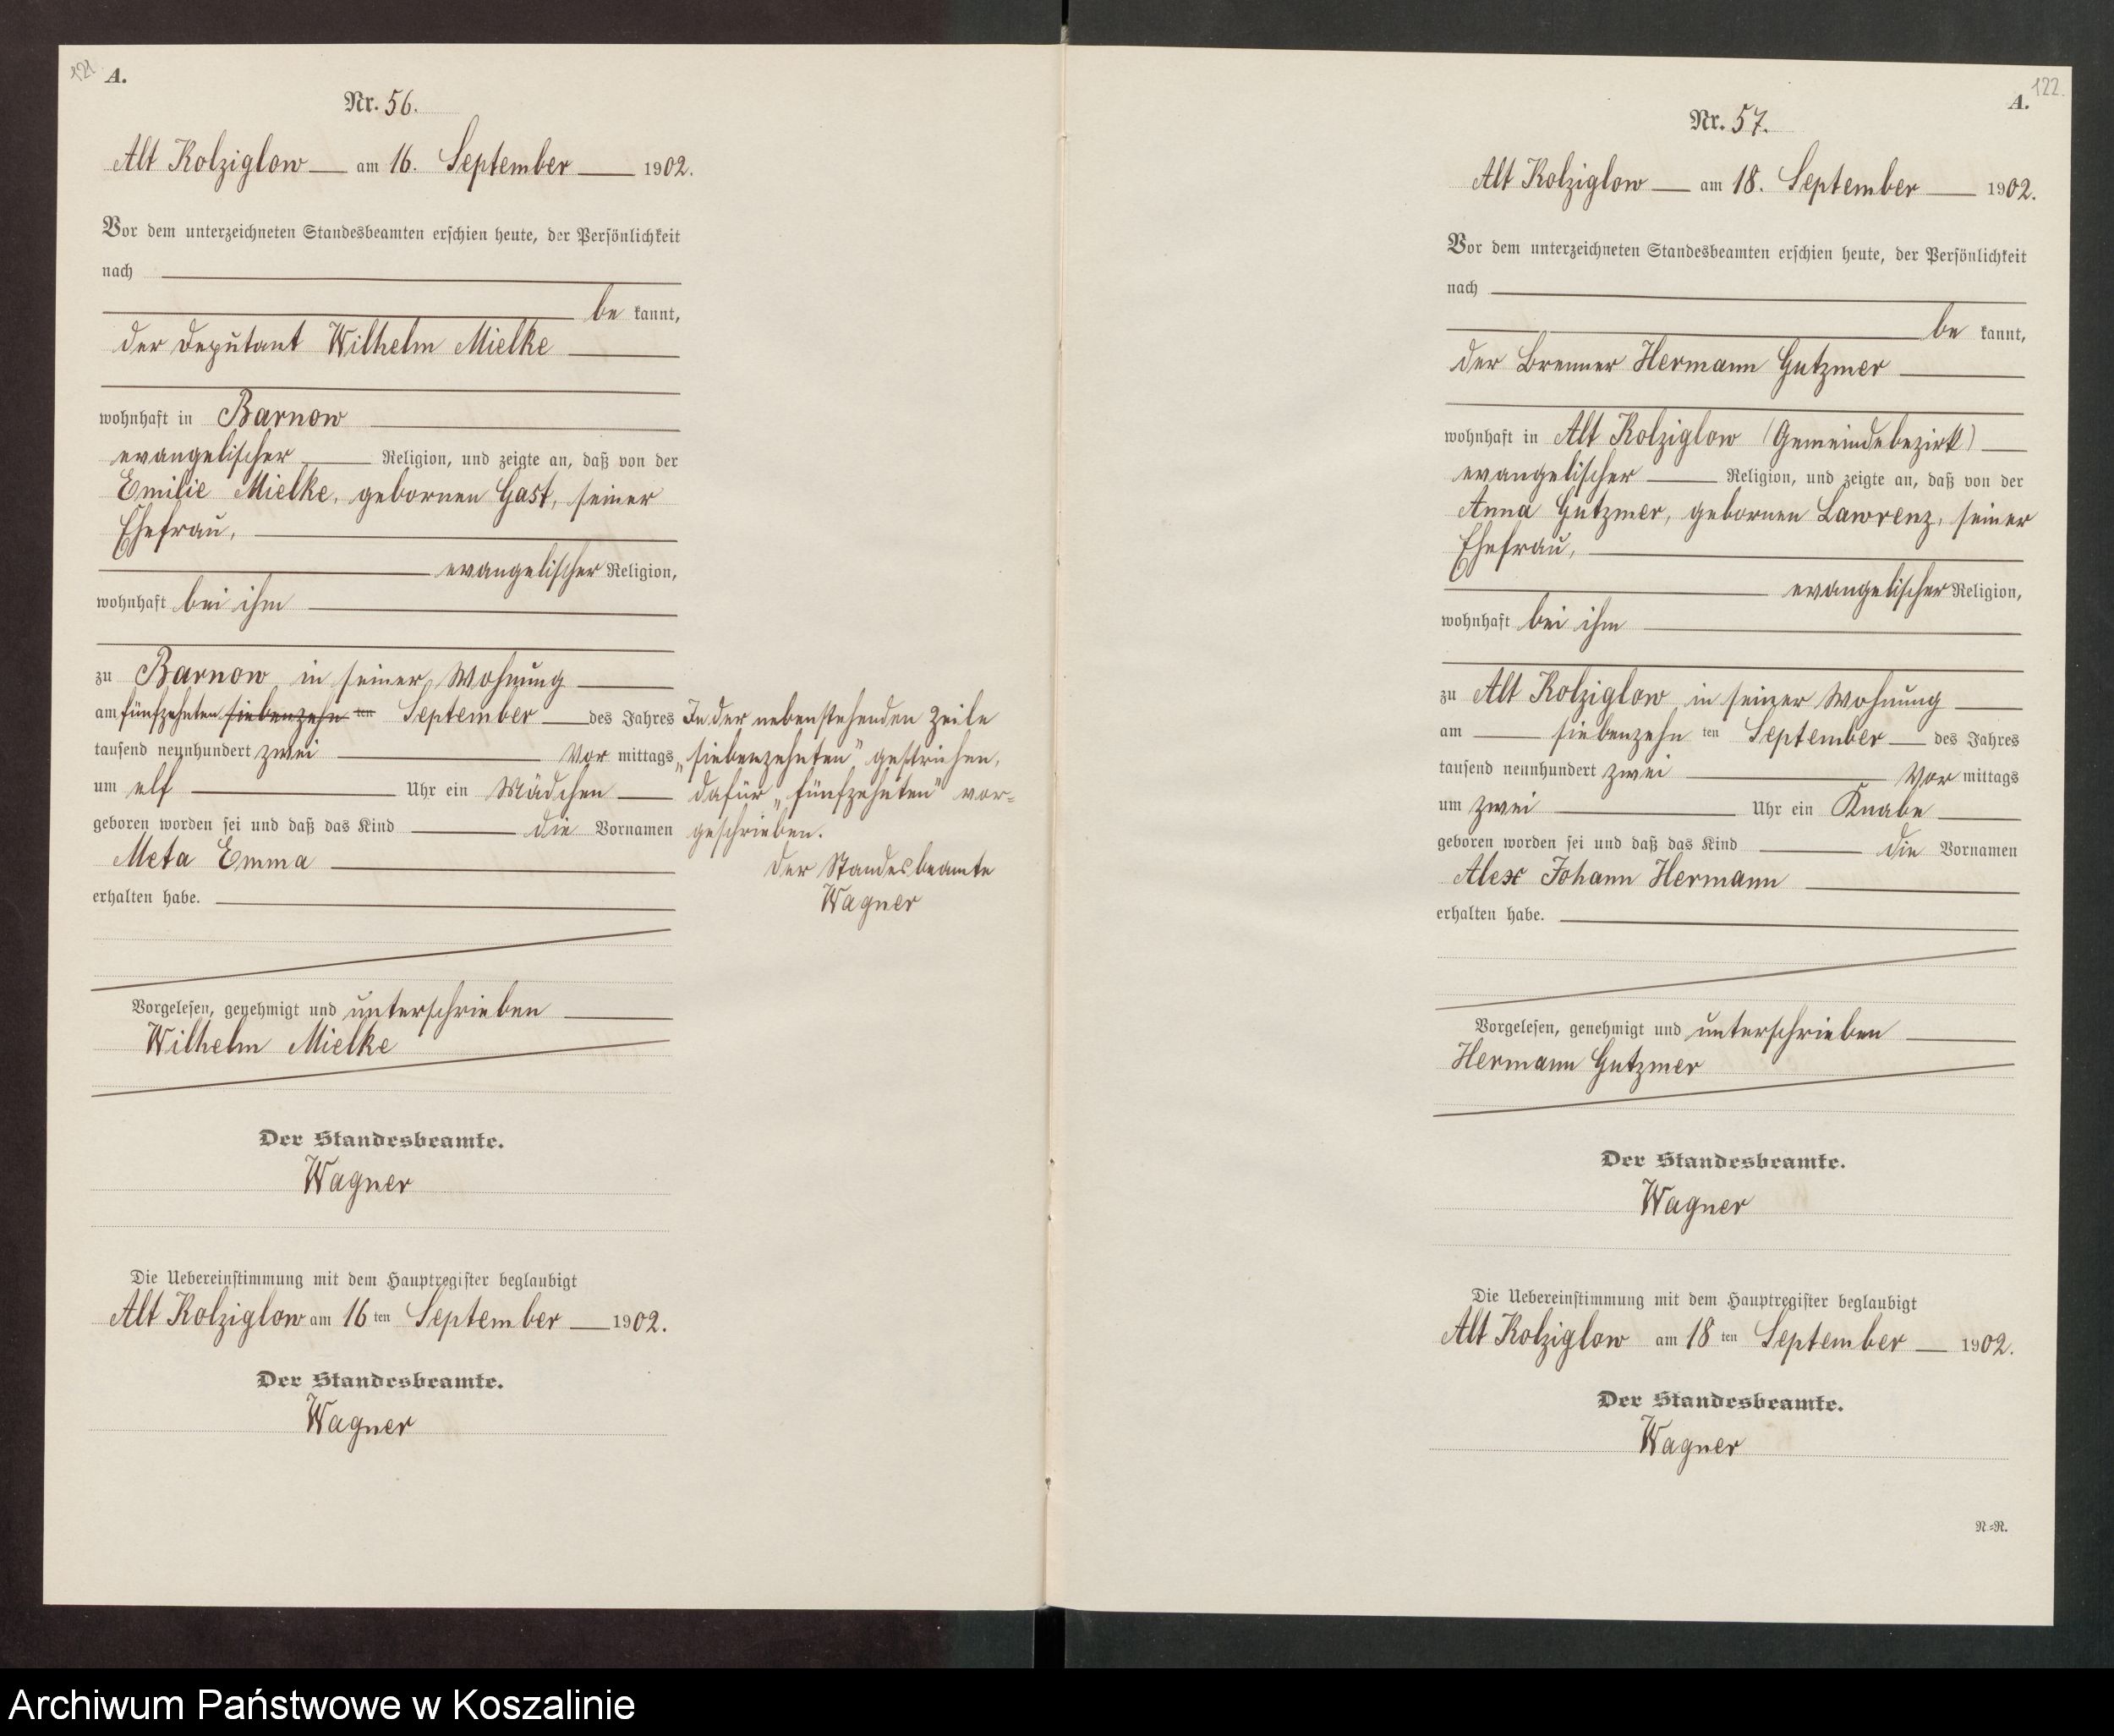 121
A.
Nr. 56.
Alt Kolziglow am 16. September 1902.
Vor dem unterzeichneten Standesbeamten erschien heute, der Persönlichkeit
nach
be kannt,
der Deputant Wilhelm Mielke
wohnhaft in Barnow
evangelischer Religion, und zeigte an, daß von der
Emilie Mielke, gebornen Gast, seiner
Ehefrau,
evangelischer Religion,
wohnhaft bei ihm
zu Barnow in seiner Wohnung
am fünfzehnten siebenzehn ten September des Jahres
tausend neunhundert zwei Vor mittags
um elf Uhr ein Mädchen
geboren worden sei und daß das Kind die Vornamen
Meta Emma
erhalten habe.
In der nebenstehenden Zeile
„siebenzehnten" gestrichen,
dafür „fünfzehnten" vor=
geschrieben.
Der Standesbeamte
Wagner
Vorgelesen, genehmigt und unterschrieben
Wilhelm Mielke
Der Standesbeamte.
Wagner
Die Uebereinstimmung mit dem Hauptregister beglaubigt
Alt Kolziglow am 16 ten September 1902.
Der Standesbeamte.
Wagner
122.
A.
Nr. 57.
Alt Kolziglow am 18. September 1902.
Vor dem unterzeichneten Standesbeamten erschien heute, der Persönlichkeit
nach
be kannt,
der Brenner Hermann Gutzmer
wohnhaft in Alt Kolziglow (Gemeindebezirk)
evangelischer Religion, und zeigte an, daß von der
Anna Gutzmer, gebornen Lawrenz, seiner
Ehefrau,
evangelischer Religion,
wohnhaft bei ihm
zu Alt Kolziglow in seiner Wohnung
am siebenzehn ten September des Jahres
tausend neunhundert zwei Vor mittags
um zwei Uhr ein Knabe
geboren worden sei und daß das Kind die Vornamen
Alex Johann Hermann
erhalten habe.
Vorgelesen, genehmigt und unterschrieben
Hermann Gutzmer
Der Standesbeamte.
Wagner
Die Uebereinstimmung mit dem Hauptregister beglaubigt
Alt Kolziglow am 18 ten September 1902.
Der Standesbeamte.
Wagner
N=R.
Archiwum Państwowe w Koszalinie